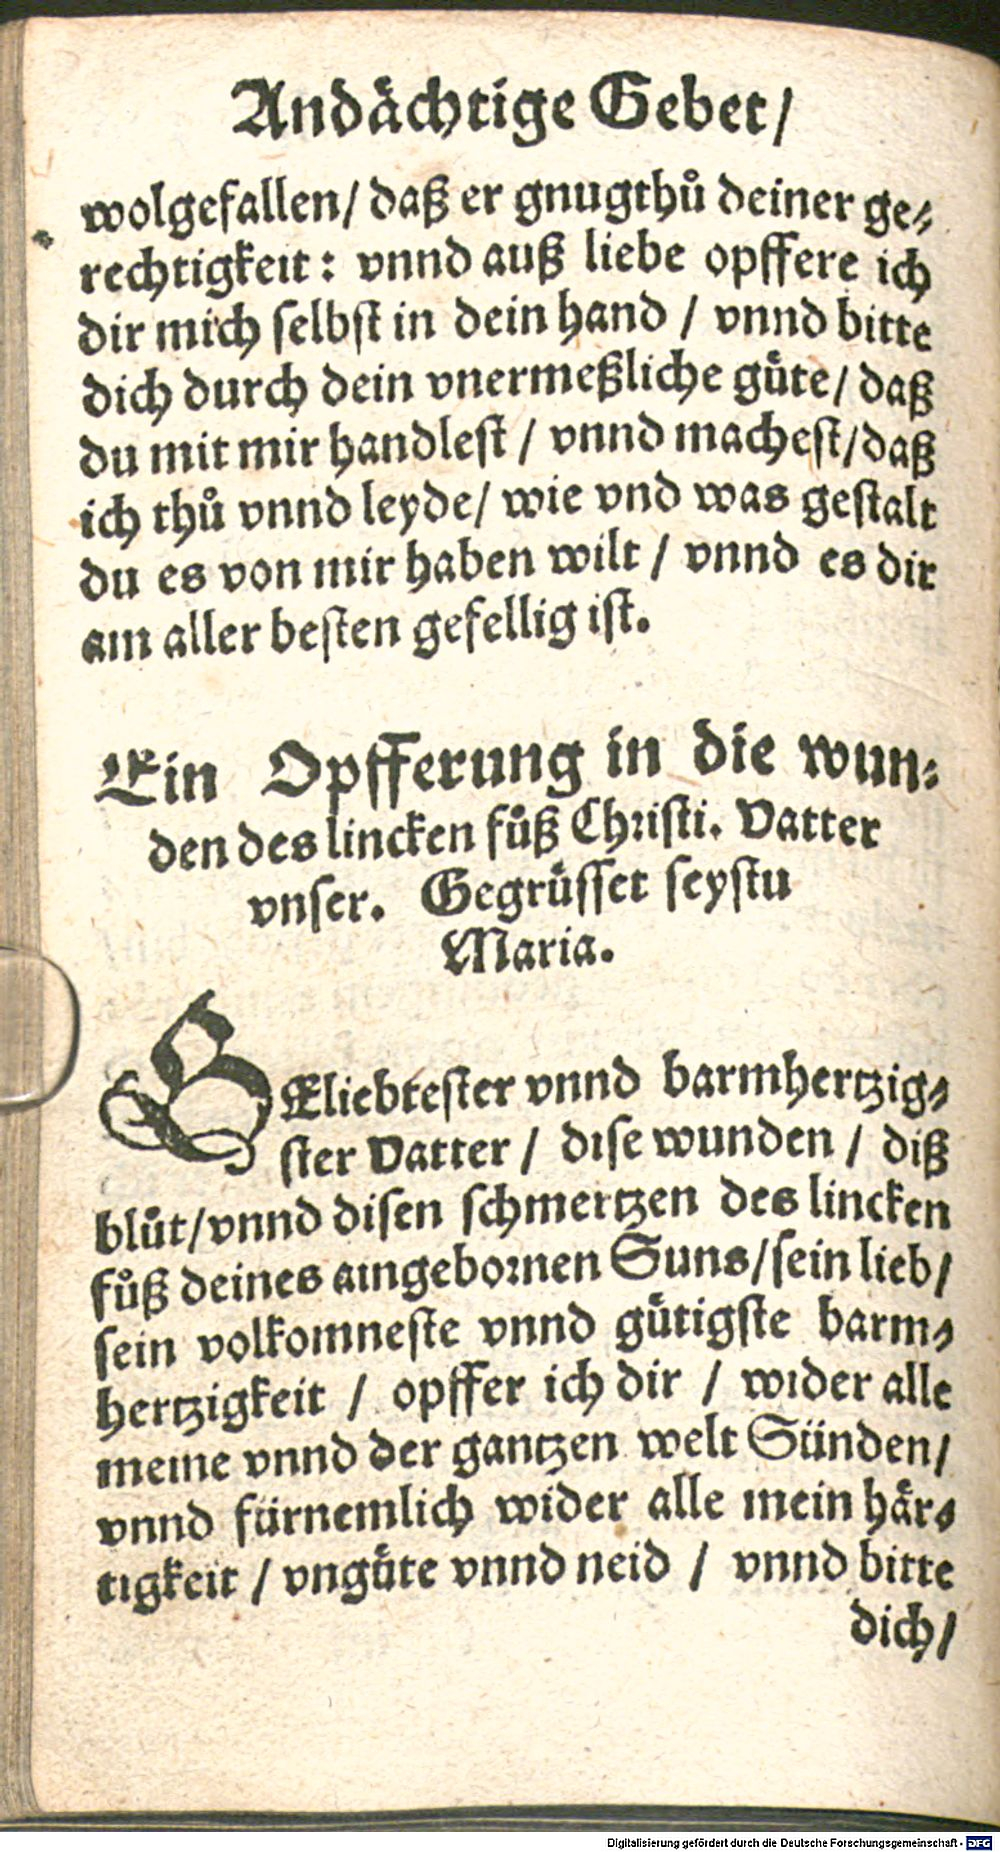 Andaͤchtige Gebet/
wolgefallen/ daß er gnugthuͦ deiner ge⸗
rechtigkeit: vnnd auß liebe opffere ich
dir mich ſelbſt in dein hand / vnnd bitte
dich durch dein vnermeßliche guͤte/ daß
du mit mir handleſt / vnnd macheſt/daß
ich thuͦ vnnd leyde/ wie vnd was geſtalt
du es von mir haben wilt / vnnd es dir
am aller beſten gefellig iſt.
Ein Opfferung in die wun⸗
den des lincken fuͦß Chꝛiſti. Vatter
vnſer. Gegruͤſſet ſeyſtu
Maria.
GEliebteſter vnnd barmhertzig⸗
ſter Vatter / diſe wunden / diß
bluͦt/vnnd diſen ſchmertzen des lincken
fuͦß deines aingeboꝛnen Suns/ſein lieb/
ſein volkomneſte vnnd guͤtigſte barm⸗
hertzigkeit / opffer ich dir / wider alle
meine vnnd der gantzen welt Sünden/
vnnd fürnemlich wider alle mein haͤr⸗
tigkeit / vnguͤte vnnd neid / vnnd bitte
dich/
Digitalisierung gefördert durch die Deutsche Forschungsgemeinschaft - DFG